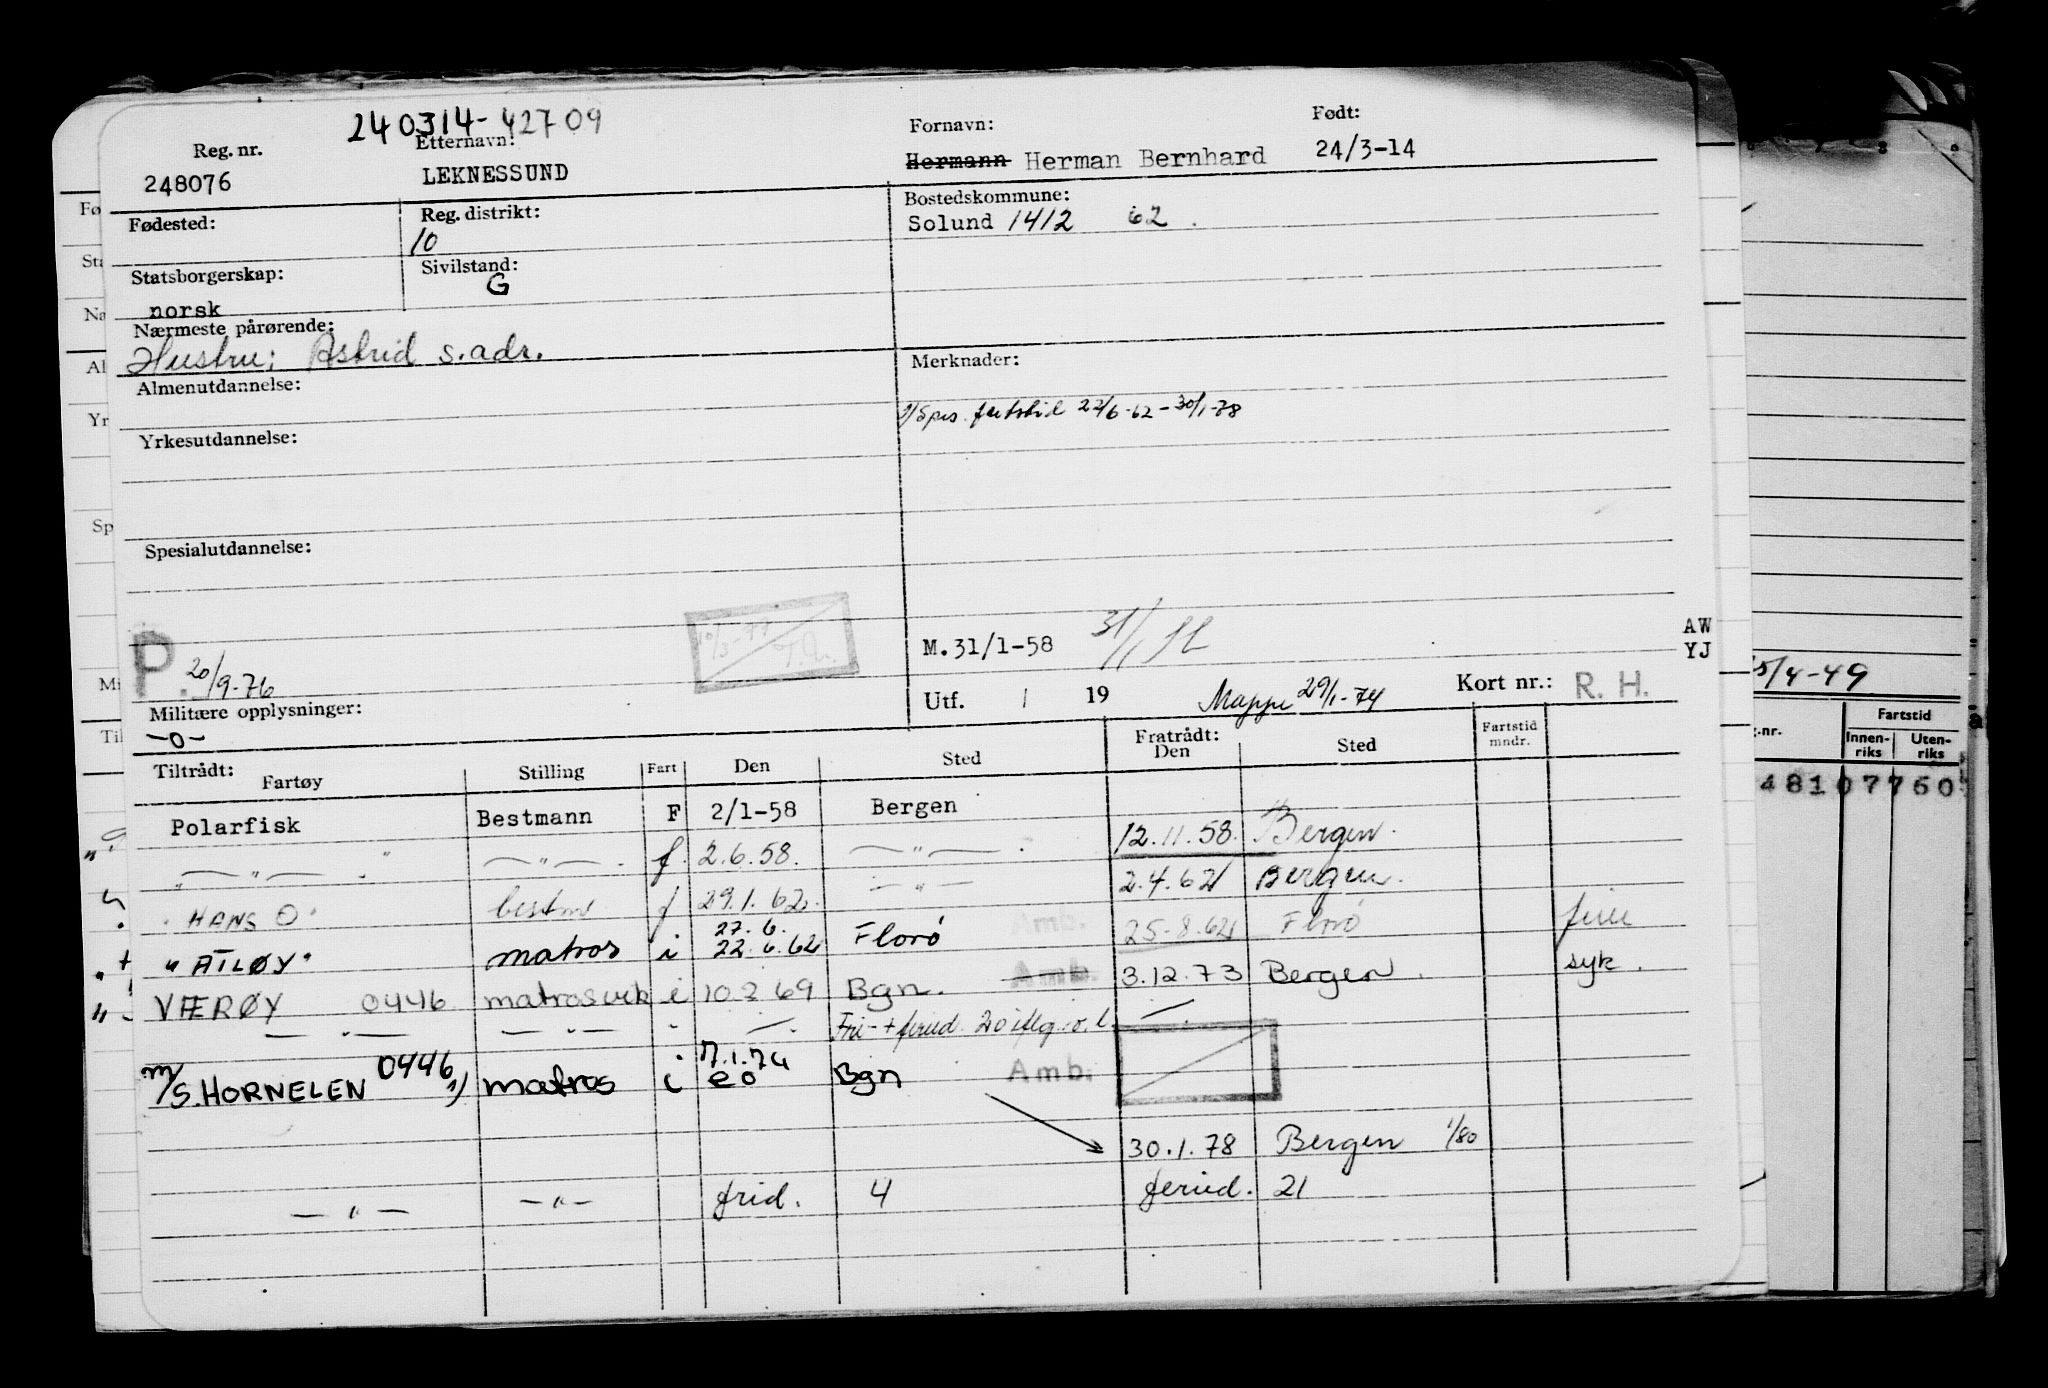 240314-42709
Reg. nr. Etternavn: Fornavn: Født:
248076 LEKNESSUND Hermann Herman Bernhard 24/3-14
Fødested: Reg. distrikt: Bostedskommune:
10 Solund 1412 62
Statsborgerskap: Sivilstand:
norsk G
Nærmeste pårørende:
Hustru: Astrid s.adr.
Almenutdannelse: Merknader:
1) Spes. fartstid 22/6-62-30/1-78
Yrkesutdannelse:
Spesialutdannelse:
M.31/1-58 31/1
AW
YJ
P. 20/9-76
Utf. / 19 Mappe 29/1-74 Kort nr.: R. H.
Militære opplysninger:
-0-
Tiltrådt: Fratrådt:
Fartøy Stilling Fart Den Sted Den Sted Fartstid mndr.
Polarfisk Bestmann F 2/1-58 Bergen
— " — — " — f 2.6.58. — " — 12.11.58. Bergen.
"HANS O" bestm f 29.1.62. — " — 2.4.62 Bergen.
27.6.
"ATLØY" matros i 22.6.62 Florø Amb. 25-8.62 Florø ferie
VÆRØY 0446 matrosvik i 10.2 69 Bgn. Amb. 3.12.73 Bergen syk.
— " — — " — - —. Fri- + feried. 20 iflg. o.l —.
m/s. HORNELEN 0446 1) matros i 7.1.74 Bgn Amb.
eo
30.1.78 Bergen 1/80
— " — — " — frid. 4 feried. 21
Fø
Sta
Na
Al
Yr
Sp
Mi
Til
5/4-49
g.nr. Fartstid
Innen-riks Uten-riks
48107760